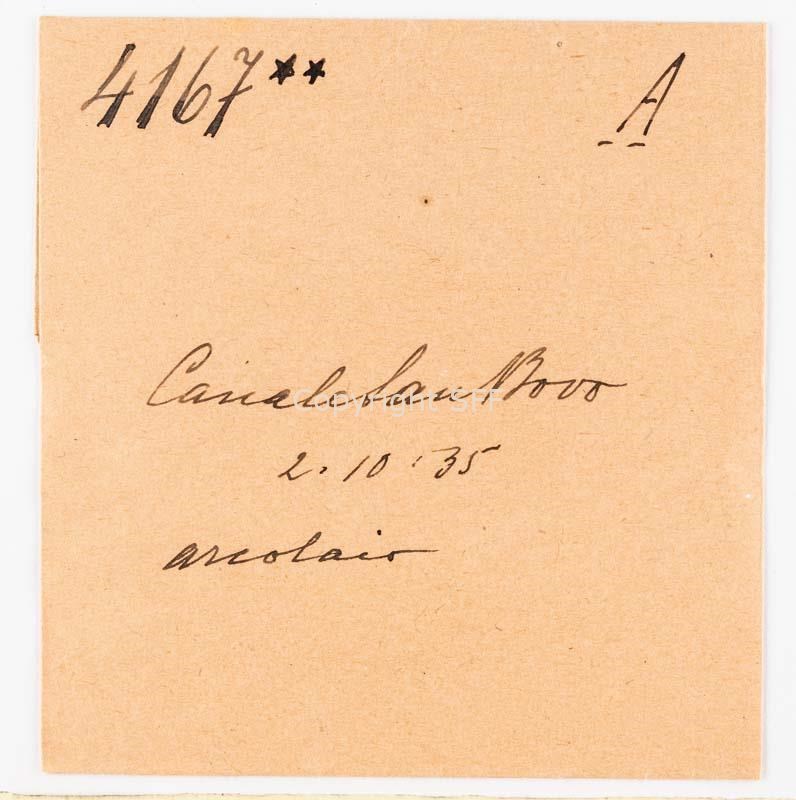 4167** A
Canal San Bovo
Copyright SFF
2.10.35
arcolaio